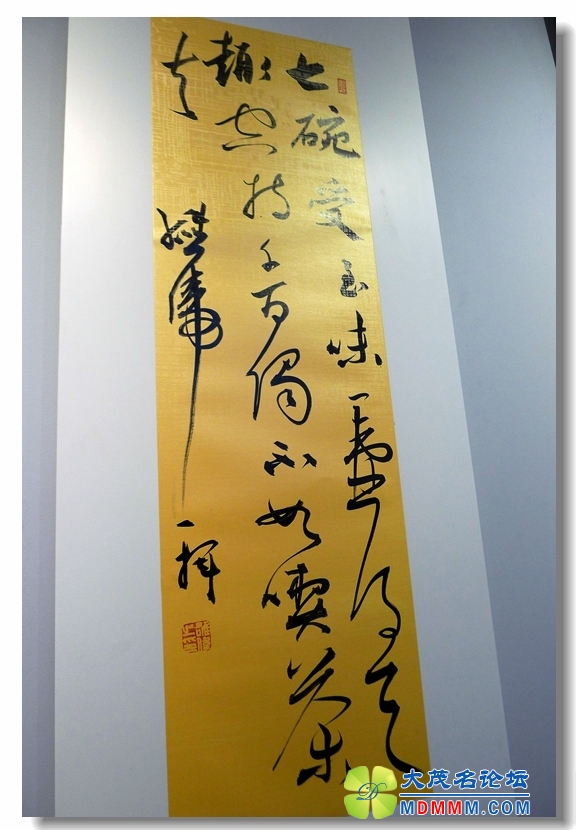 七碗受至味一壺得真
趣空持千百偈不如喫茶
去
一揮
大茂名论坛
MDMMM.COM